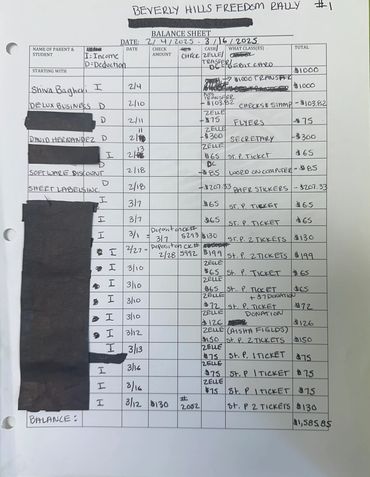 BEVERLY HILLS FREEDOM RALLY #1
BALANCE SHEET
DATE: 2/4/2025 - 3/16/2025
NAME OF PARENT & STUDENT I: Income D: Deduction DATE CHECK AMOUNT CHECK CASH/ ZELLE/ TRASFER/ DC DEBIT CARD WHAT CLASS(ES) TOTAL
STARTING WITH $1000
Shiva Bagheri I 2/4 $1000 TRANSFER
DELUX BUSINESS D 2/10 TRANSFER -$103.82 CHECKS & STAMP -$103.82
D 2/11 ZELLE -$75 FLYERS -$75
DAVID HERNANDEZ D 2/11 ZELLE -$300 SECRETARY -$300
I 2/13 ZELLE $65 ST. P. TICKET $65
SOFTWARE DISCOUNT D 2/18 DC -$85 WORD ON COMPUTER -$85
SHEET LABELS INC D 2/18 -$207.33 STICKERS -$207.33
I 3/7 $65 ST. P. TICKET $65
I 3/7 $65 ST. P. TICKET $65
I 3/1 Deposit on 3/7 CK# 5273 $130 ST. P. 2 TICKETS $130
I 2/27 Deposit on 2/28 CK# 5992 $199 ST. P. 2 TICKETS $199
I 3/10 ZELLE $65 ST. P. TICKET $65
I 3/10 ZELLE $65 ST. P. TICKET $65
I 3/10 ZELLE $72 ST. P. TICKET + $7 DONATION $72
I 3/10 ZELLE $126 DONATION $126
I 3/12 ZELLE $150 (AISHA FIELDS) ST. P. 2 TICKETS $150
I 3/13 ZELLE $75 ST. P. 1 TICKET $75
I 3/16 ZELLE $75 ST. P 1 TICKET $75
I 3/16 ZELLE $75 ST. P 1 TICKET $75
I 3/12 $130 # 2002 ST. P. 2 TICKETS $130
BALANCE: $1,585.85